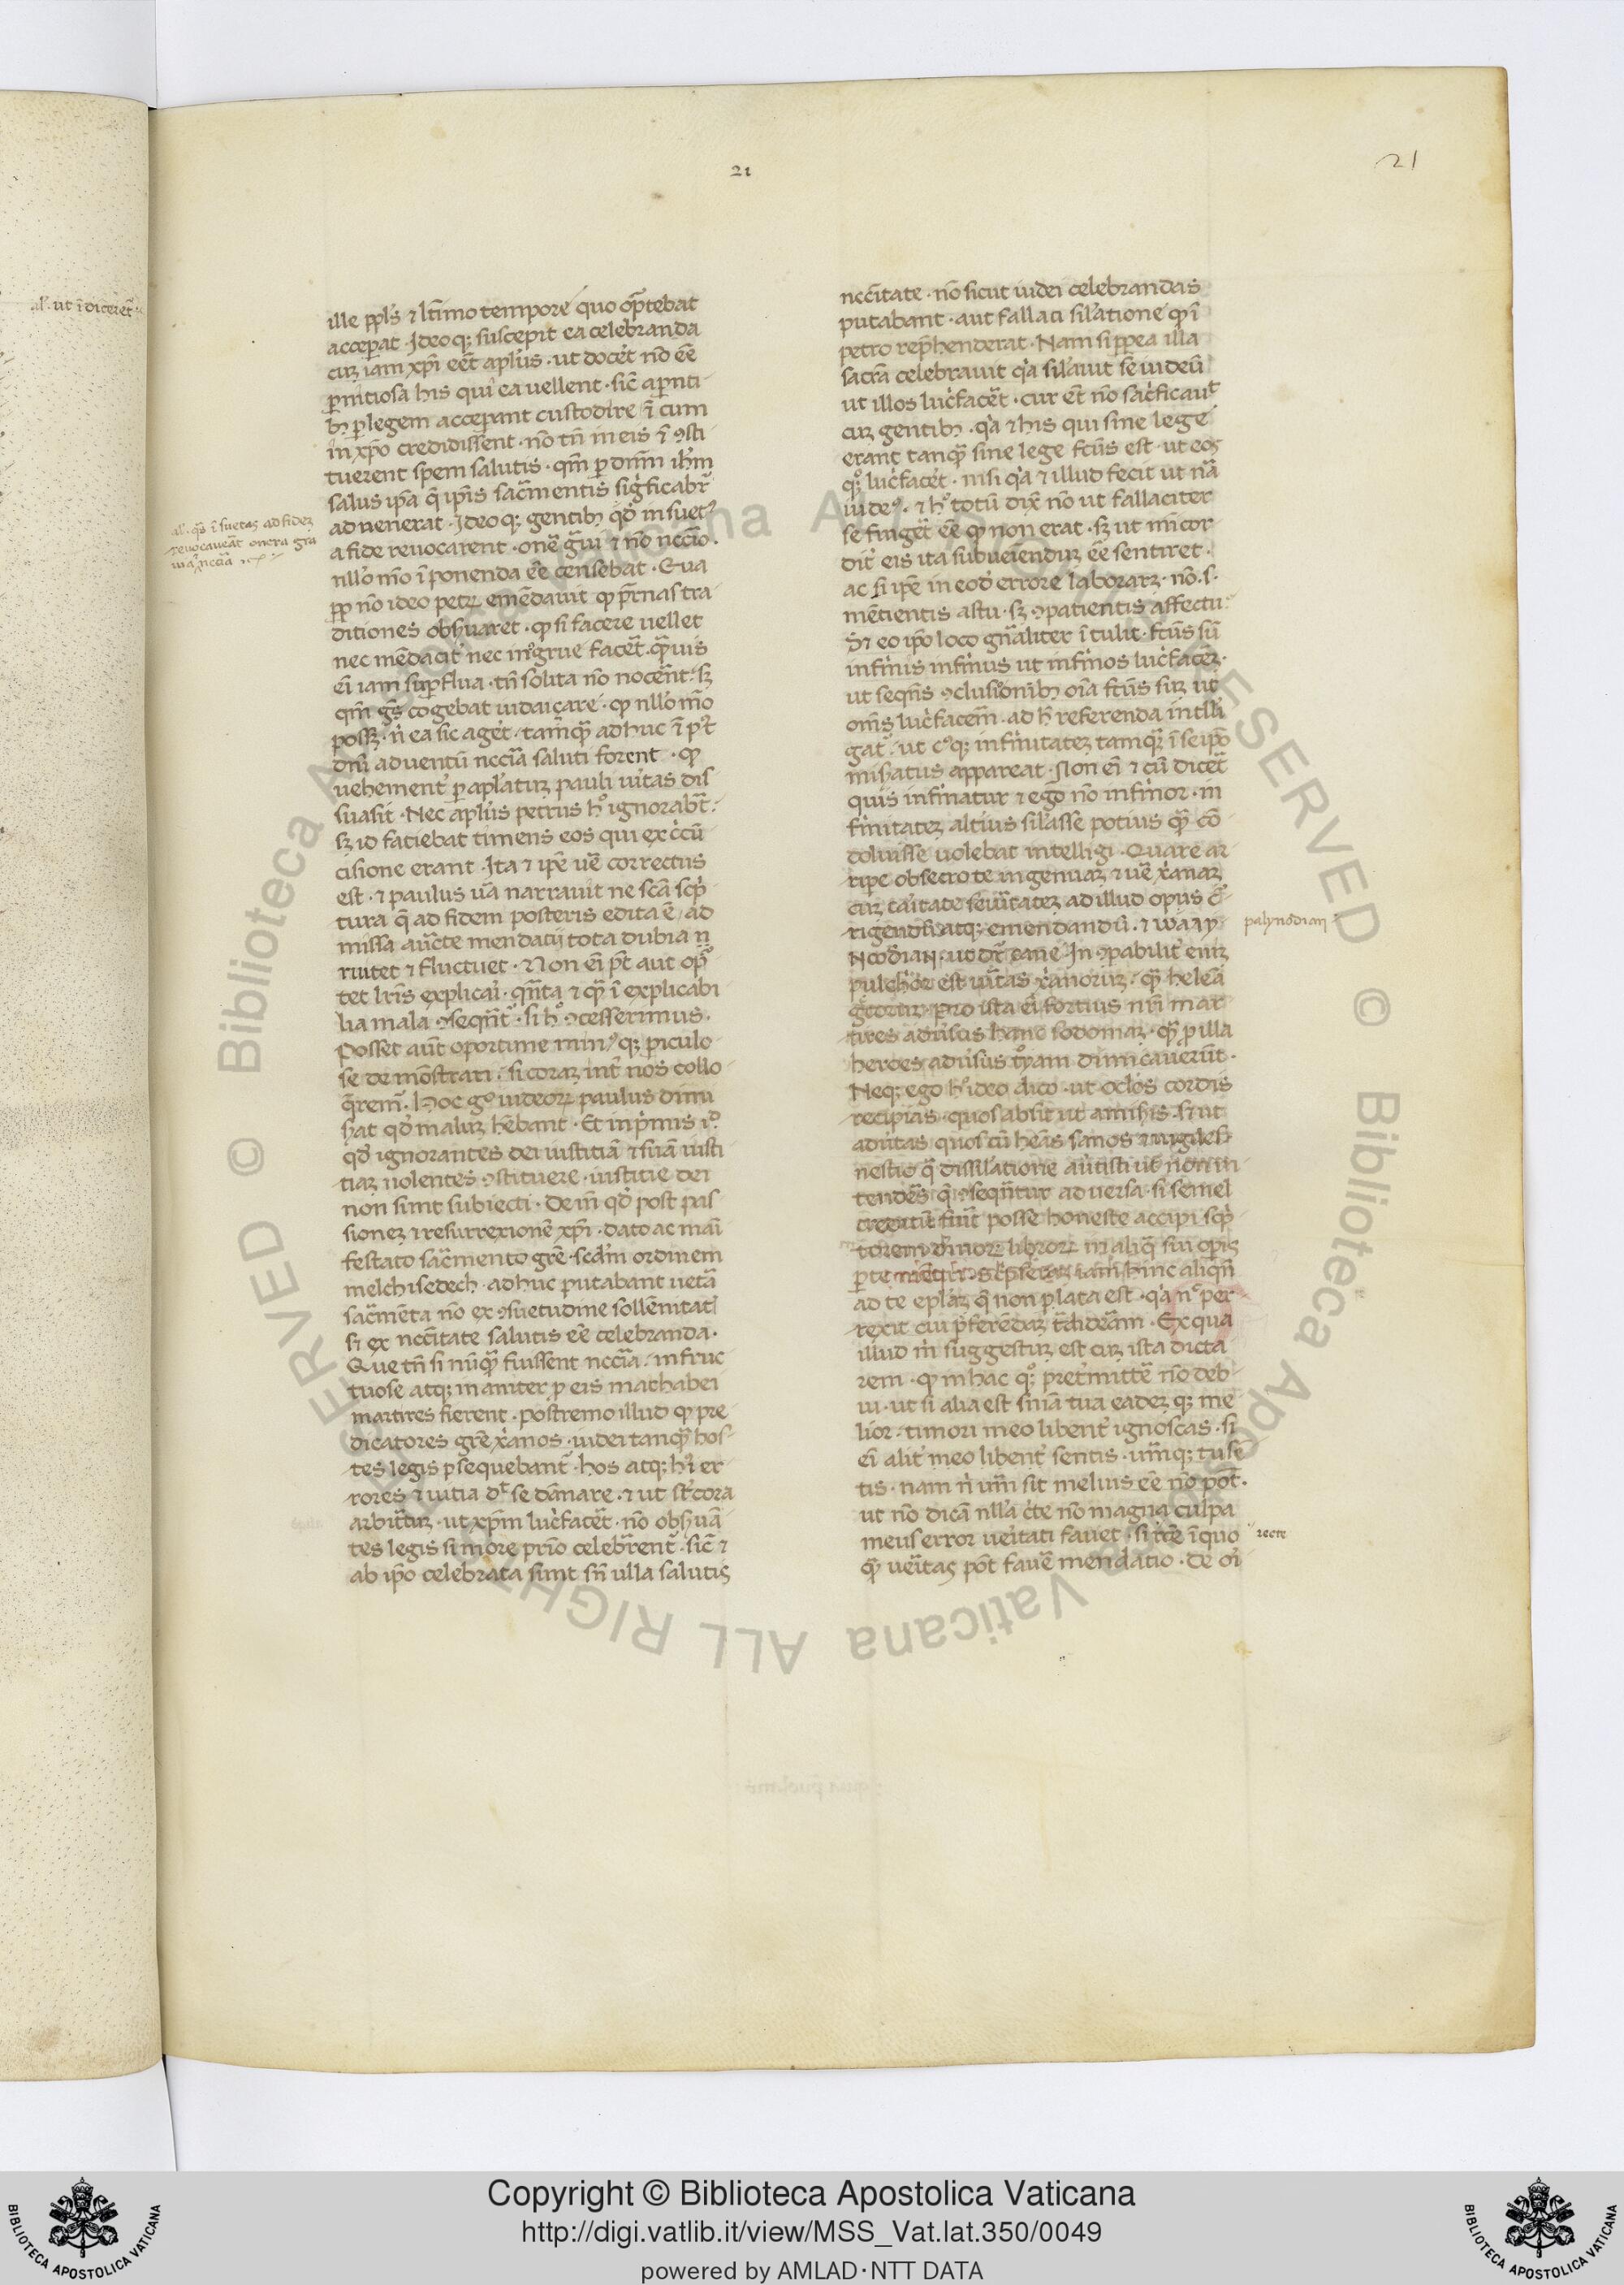 21
21
al'. ut īdicerēt
ille ppl's ⁊ l̄timo tempore quo op̄tebat
acceꝑat. Ideoqꝫ suscepit ea celebranda
cuꝫ iam xp̄i eēt apl'us. ut docēt nō eē
ꝑnitiosa his qui ea uellent. sic̄ a ꝑnti
bꝫ ꝑ legem acceꝑant custodire ī cum
in xp̄o credidissent. nō tn̄ in eis ī ꝯsti
tuerent spem salutis. qm̄ ꝑ dnm̄ ih̄m
salus ip̄a q̄ ip̄is sac̄mentis sigficabr̄
aduenerat. Ideoqꝫ gentibꝫ qd̓ insuetꝰ
a fide reuocarent. onꝰ g̃ui ⁊ nō nccīo.
nllo mō īponenda eē censebat. Qua
ꝓꝑ nō ideo petꝝ emēdauit ꝙ p̄rnas tra
ditiones obẜuaret. ꝙ si facere uellet
nec mēdacit̓ nec īnogrue facet̄. q̄uis
ei̅ iam suꝑflua. tn̄ solita nō nocent̄. sꝫ
qm̄ gs̄ cogebat iudaiçare. ꝙ nllo mō
possꝫ. n̓ ea sic aget̓. tamq̄ adhuc ī p't
dn̄i aduentū nccīa saluti forent. ꝙ
uehement̓ ꝑ apl'atuꝫ pauli uitas dis
suasit. Nec apl'us petrus hͦ ignorabt̄.
sꝫ id faciebat timens eos qui ex c̓cū
cisione erant. Ita ⁊ ip̄e ue̅ correctus
est. ⁊ paulus ua̅ narrauit ne sc̄a scp̓
tura q̄ ad fidem posteris edita ē. ad
missa auc̄te mendatij tota dubia n
nutet ⁊ fluctuet. Non ei̅ p̄t aut op̄
tet lr̄is explicai̓. qn̄ta ⁊ q̄ ī explicabi
lia mala ꝯseqn̄t. si hͦ ꝯcesserimus.
Posset aut̄ oportune minꝰqꝫ ꝑiculo
se demōstrari. si coraꝫ int̓ nos collo
q̄rem̄. Hoc gͦ iudeoꝝ paulus dimi
ẜat qd̓ maluꝫ h̄ebant. Et in p̓mis iᵈ.
qd̓ ignorantes dei iustitiā ⁊ suā iusti
tiaꝫ uolentes ꝯstituere. iustitie dei
non sunt subiecti. Dem̄ qd̓ post pas
sioneꝫ ⁊ resurrexionē xp̄i. dato ac mai̅
festato sac̄mento gr̄e. scd̓m ordinem
melchisedech. adhuc putabant uetā
sac̄mēta nō ex ꝯsuetudine sollēnitat̓
sꝫ ex nccītate salutis eē celebranda.
Que tn̄ si nūq̄ fuissent nccīa. infruc
tuose atqꝫ inaniter ꝑ eis machabei
martires fierent. Postremo illud ꝙ pre
dicatores gr̄e x̓anos. iudei tanq̄ hos
tes legis ꝑsequebant̄. hos atqꝫ hͥ er
rores ⁊ uitia dᵗ se dānare. ⁊ ut st̓cora
arbitt̄uꝫ. ut xp̄m luc̓facet̄. nō obẜuā
tes legis si more pr̄io celebrent̄. sic̄ ⁊
ab ip̄o celebrata sunt sn̄ ulla salutis
al'. q̄s īsuetas ad fideꝫ
reuocauent̄ onera gra
uia ⁊ nccīa ⁊c.
nccītate. nō sicut iudei celebrandas
putabant. aut fallaci sil'atione ꝙ ī
petro rep̄henderat. Nam si ꝓpea illa
sacr̄a celebrauit q̓a sil'auit se iudeū
ut illos luc̓facet̄. cur et̄ nō sac̓ficauᵗ
cuꝫ gentibꝫ. q̓a ⁊ his qui sine lege
erant tanq̄ sine lege fc̄us est. ut eos
qͦꝫ luc̓facet̄. nisi q̓a ⁊ illud fecit ut nā
iudeꝰ. ⁊ hͦ totū dix̄ nō ut fallaciter
se finget̄ eē ꝙ non erat. sꝫ ut mīcor
dit̓ eis ita subueīenduꝫ eē sentiret.
ac si ip̄e in eod̓ errore laboraꝝ. nō .s.
mētientis astu. sꝫ ꝯpatientis affectu.
St̄ eo ip̄o loco gn̄aliter ītulit. fc̄us sū
infirmis infirmus ut infirmos luc̓faceꝝ.
ut seqn̄s ꝯclusionibꝫ oīa fc̄us suꝫ ut
om̄s luc̓facem̄. ad h̄ referenda intelli
gat̓. ut cꝰqꝫ infirmitateꝫ tamq̄ ī seip̄o
miẜatus appareat. Non ei̅ ⁊ cū dicet̄
quis infirmatur ⁊ ego nō infirmor. in
firmitateꝫ altius sil'asse potius q̄ cō
doluisse uolebat intelligi. Quare ar
ripe obsecro te ingenuaꝫ ⁊ ue̅ x̓anaꝫ
cuꝫ caritate seueritateꝫ ad illud opus cͦr
rigendū atqꝫ emendandū. ⁊ WAΛY
NωDIAN. ut dr̄ cane. In ꝯpabilit̓ eniꝫ
pulchior est uītas x̓anoruꝫ. q̄ helenā
grecoruꝫ. Pro ista ei̅ fortius nr̄i mar
tires adu̓sus hanc sodomaꝫ. q̄ ꝑ illa
heroes adu̓sus troyam dimicauerūt.
Neqꝫ ego hͦ ideo dico. ut oclos cordis
recipias. quos absit ut amiseris. sꝫ ut
adu̓tas quos cū heās sanos ⁊ uigiles.
nestio q̄ dissil'atione au̓tisti ut non in
tendēs q̄ ꝯseqn̄tur aduersa. si semel
fūt posse honeste accipi scp̓
torem diuinoꝝ libroꝝ in aliq̄ sui oꝑis
ꝑte iam hinc aliq̄n̄
ad te eplaꝫ q̄ non ꝑlata est. q̓a nᶜ per
rexit cui p̓ferēdaꝫ t̄dideram. Ex qua
illud m̓ suggestuꝫ est cuꝫ ista dicta
rem. ꝙ in hac qͦꝫ pretmitte̅ nō deb
ui. ut si alia est snīa tua eademqꝫ me
lior. timori meo libent̓ ignoscas. si
ei̅ alit̓ meo libent̓ sentis. uim̄qꝫ tu sē
tis. nam n̓ uim̄ sit melius eē nō pōt.
ut nō dicā nll'a c̓te nō magna culpa
meus error ueritati fauet. si rc̄te ī quo
q̄ ueritas pōt faue̅ mendatio. De oi̓
palynodian
recte
Copyright © Biblioteca Apostolica Vaticana
http://digi.vatlib.it/view/MSS_Vat.lat.350/0049
powered by AMLAD·NTT DATA